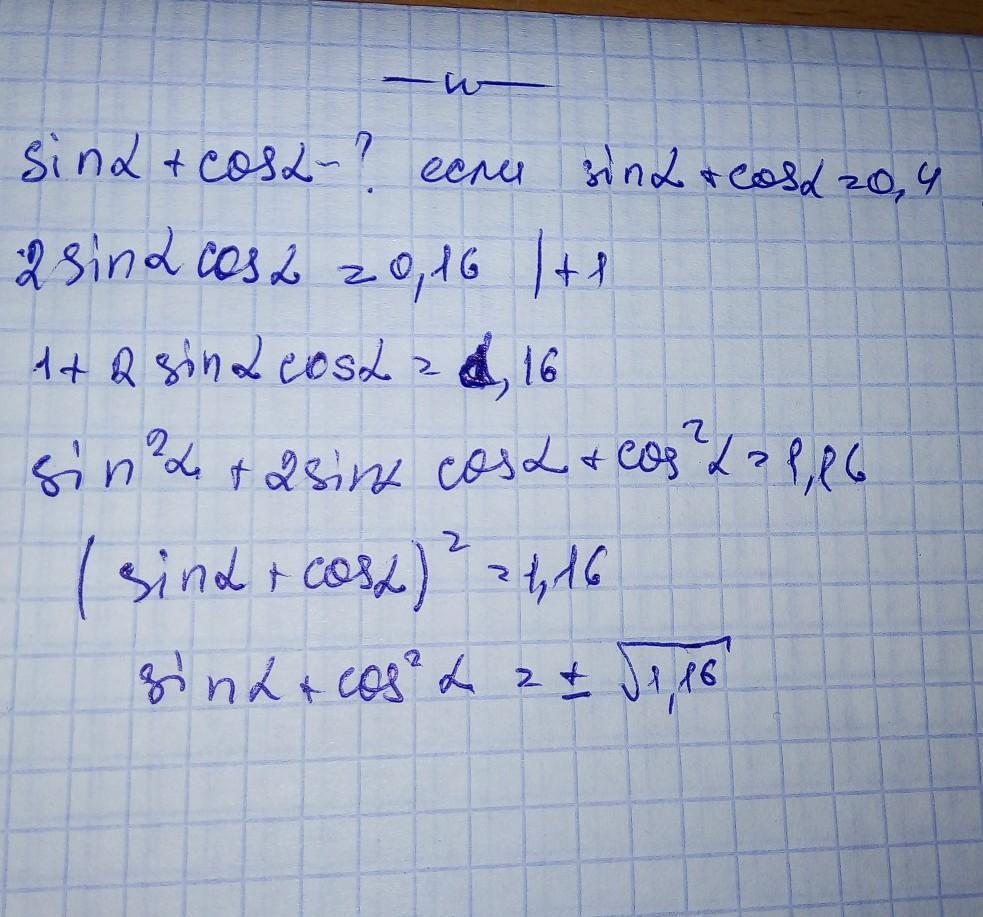 —и—
sinα + cosα - ? если sinα + cosα = 0,4
2 sinα cosα = 0,16 | + 1
1 + 2 sinα cosα = 1, 16
sin²α + 2sinα cosα + cos²α = 1,16
( sinα + cosα )² = 1,16
sinα + cos²α = ± √1,16